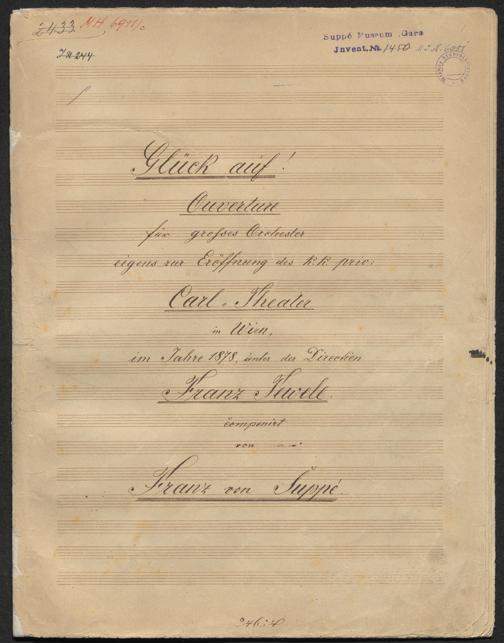 2433 MH 6911/c
Suppé Museum Gars
Invent.№ 1450
I.N. 244
Glück auf!
Ouverture
für großes Orchester
eigens zur Eröffnung des k. k. priv:
Carl-Theater
in Wien,
im Jahre 1878, unter der Direction
Franz Tewele.
componirt
von
Franz von Suppé.